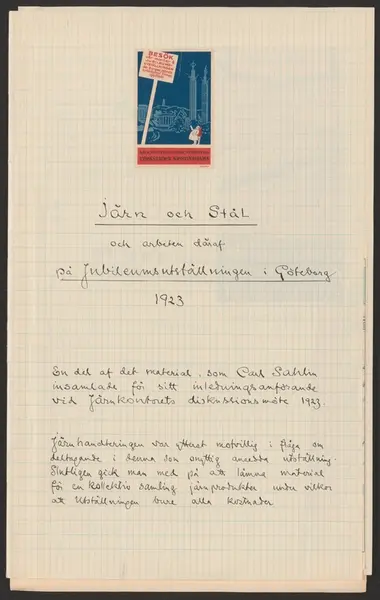 BESÖK
Järn och Stål
och arbeten däraf
på Jubileumsutställningen i Göteborg
1923
En del af det material, som Carl Sahlin
insamlade för sitt inledningsanförande
vid Järnkontorets diskussionsmöte 1923.
Järnhandteringen var ytterst motvillig i fråga om
deltagande i denna som onyttig ansedda utställning.
Slutligen gick man med på att lämna material
för en kollektiv samling järnprodukter under villkor
att Utställningen bure alla kostnader